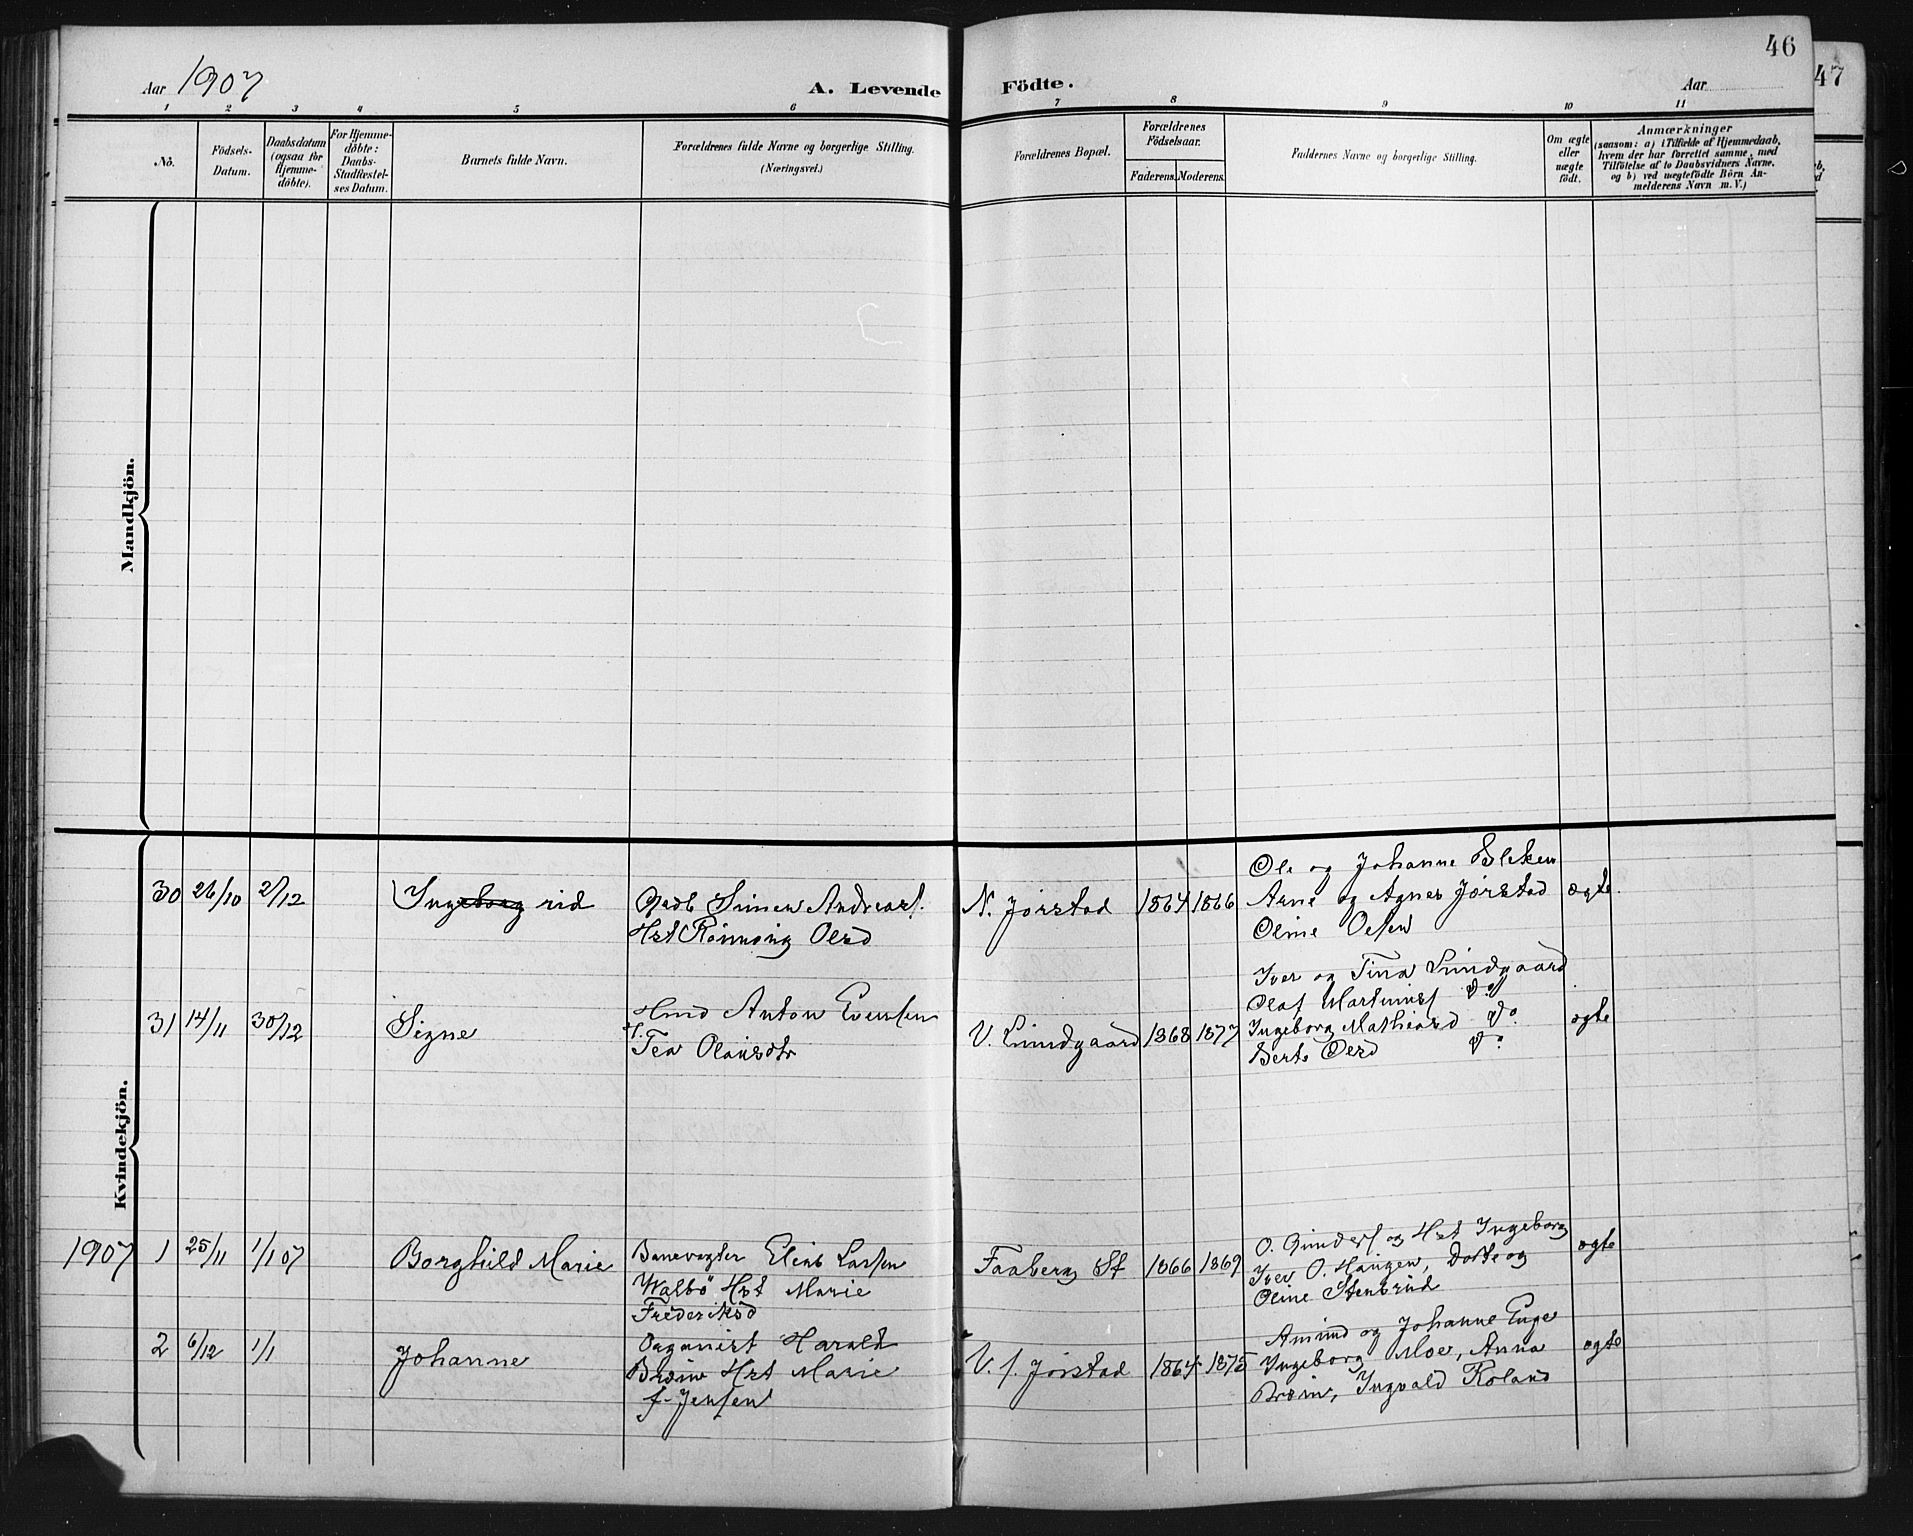 46
47
Aar 1907
A. Levende Födte.
Aar
1 2 3 4 5 6 7 8 9 10 11
No.
Födsels-
Datum.
Daabsdatum
(ogsaa for
Hjemme-
döbte).
For Hjemme-
döbte:
Daabs-
Stadfæstel-
ses Datum.
Barnets fulde Navn.
Forældrenes fulde Navne og borgerlige Stilling.
(Næringsvei.)
Forældrenes Bopæl.
Forældrenes
Födselsaar.
Faderens. Moderens.
Faddernes Navne og borgerlige Stilling.
Om ægte
eller
uægte
födt.
Anmærkninger
(saasom: a) i Tilfælde af Hjemmedaab,
hvem der har forrettet samme, med
Tilföielse af to Daabsvidners Navne,
og b) ved uægtefödte Börn An-
melderens Navn m. V.)
Mandkjön.
Kvindekjön.
30 26/10 2/12 Ingeborg rid
Gadb Simen Andreass.
Hst Rønnoug Olsd
N. Jørstad 1864 1866
Ole og Johanne Bleken
Arne og Agnes Jørstad
Oline Olsen
ægte
31 14/11 30/12 Signe
Hmd Anton Evensen
Tea Olausdtr
V. Lundgaard 1868 1877
Iver og Tina Lundgaard
Olaf Martinus do
Ingeborg Mathiasd do
Berte Olsd do
ægte
1907 1 25/11 1/1 07 Borghild Marie
Banevogter Elias Larsen
Walbö Hst Marie
Frederiksd
Faaberg St 1866 1869
O. Gunders og Hst Ingeborg
Iver O. Haugen, Dorte og
Oline Stenbrud
ægte
2 6/12 1/1 Johanne
Organist Harald
Bræin Hst Marie
f. Jensen
V. f. Jørstad 1864 1875
Amund og Johanne Enge
Ingeborg Moe, Anna
Bræin, Ingvald Roland
ægte